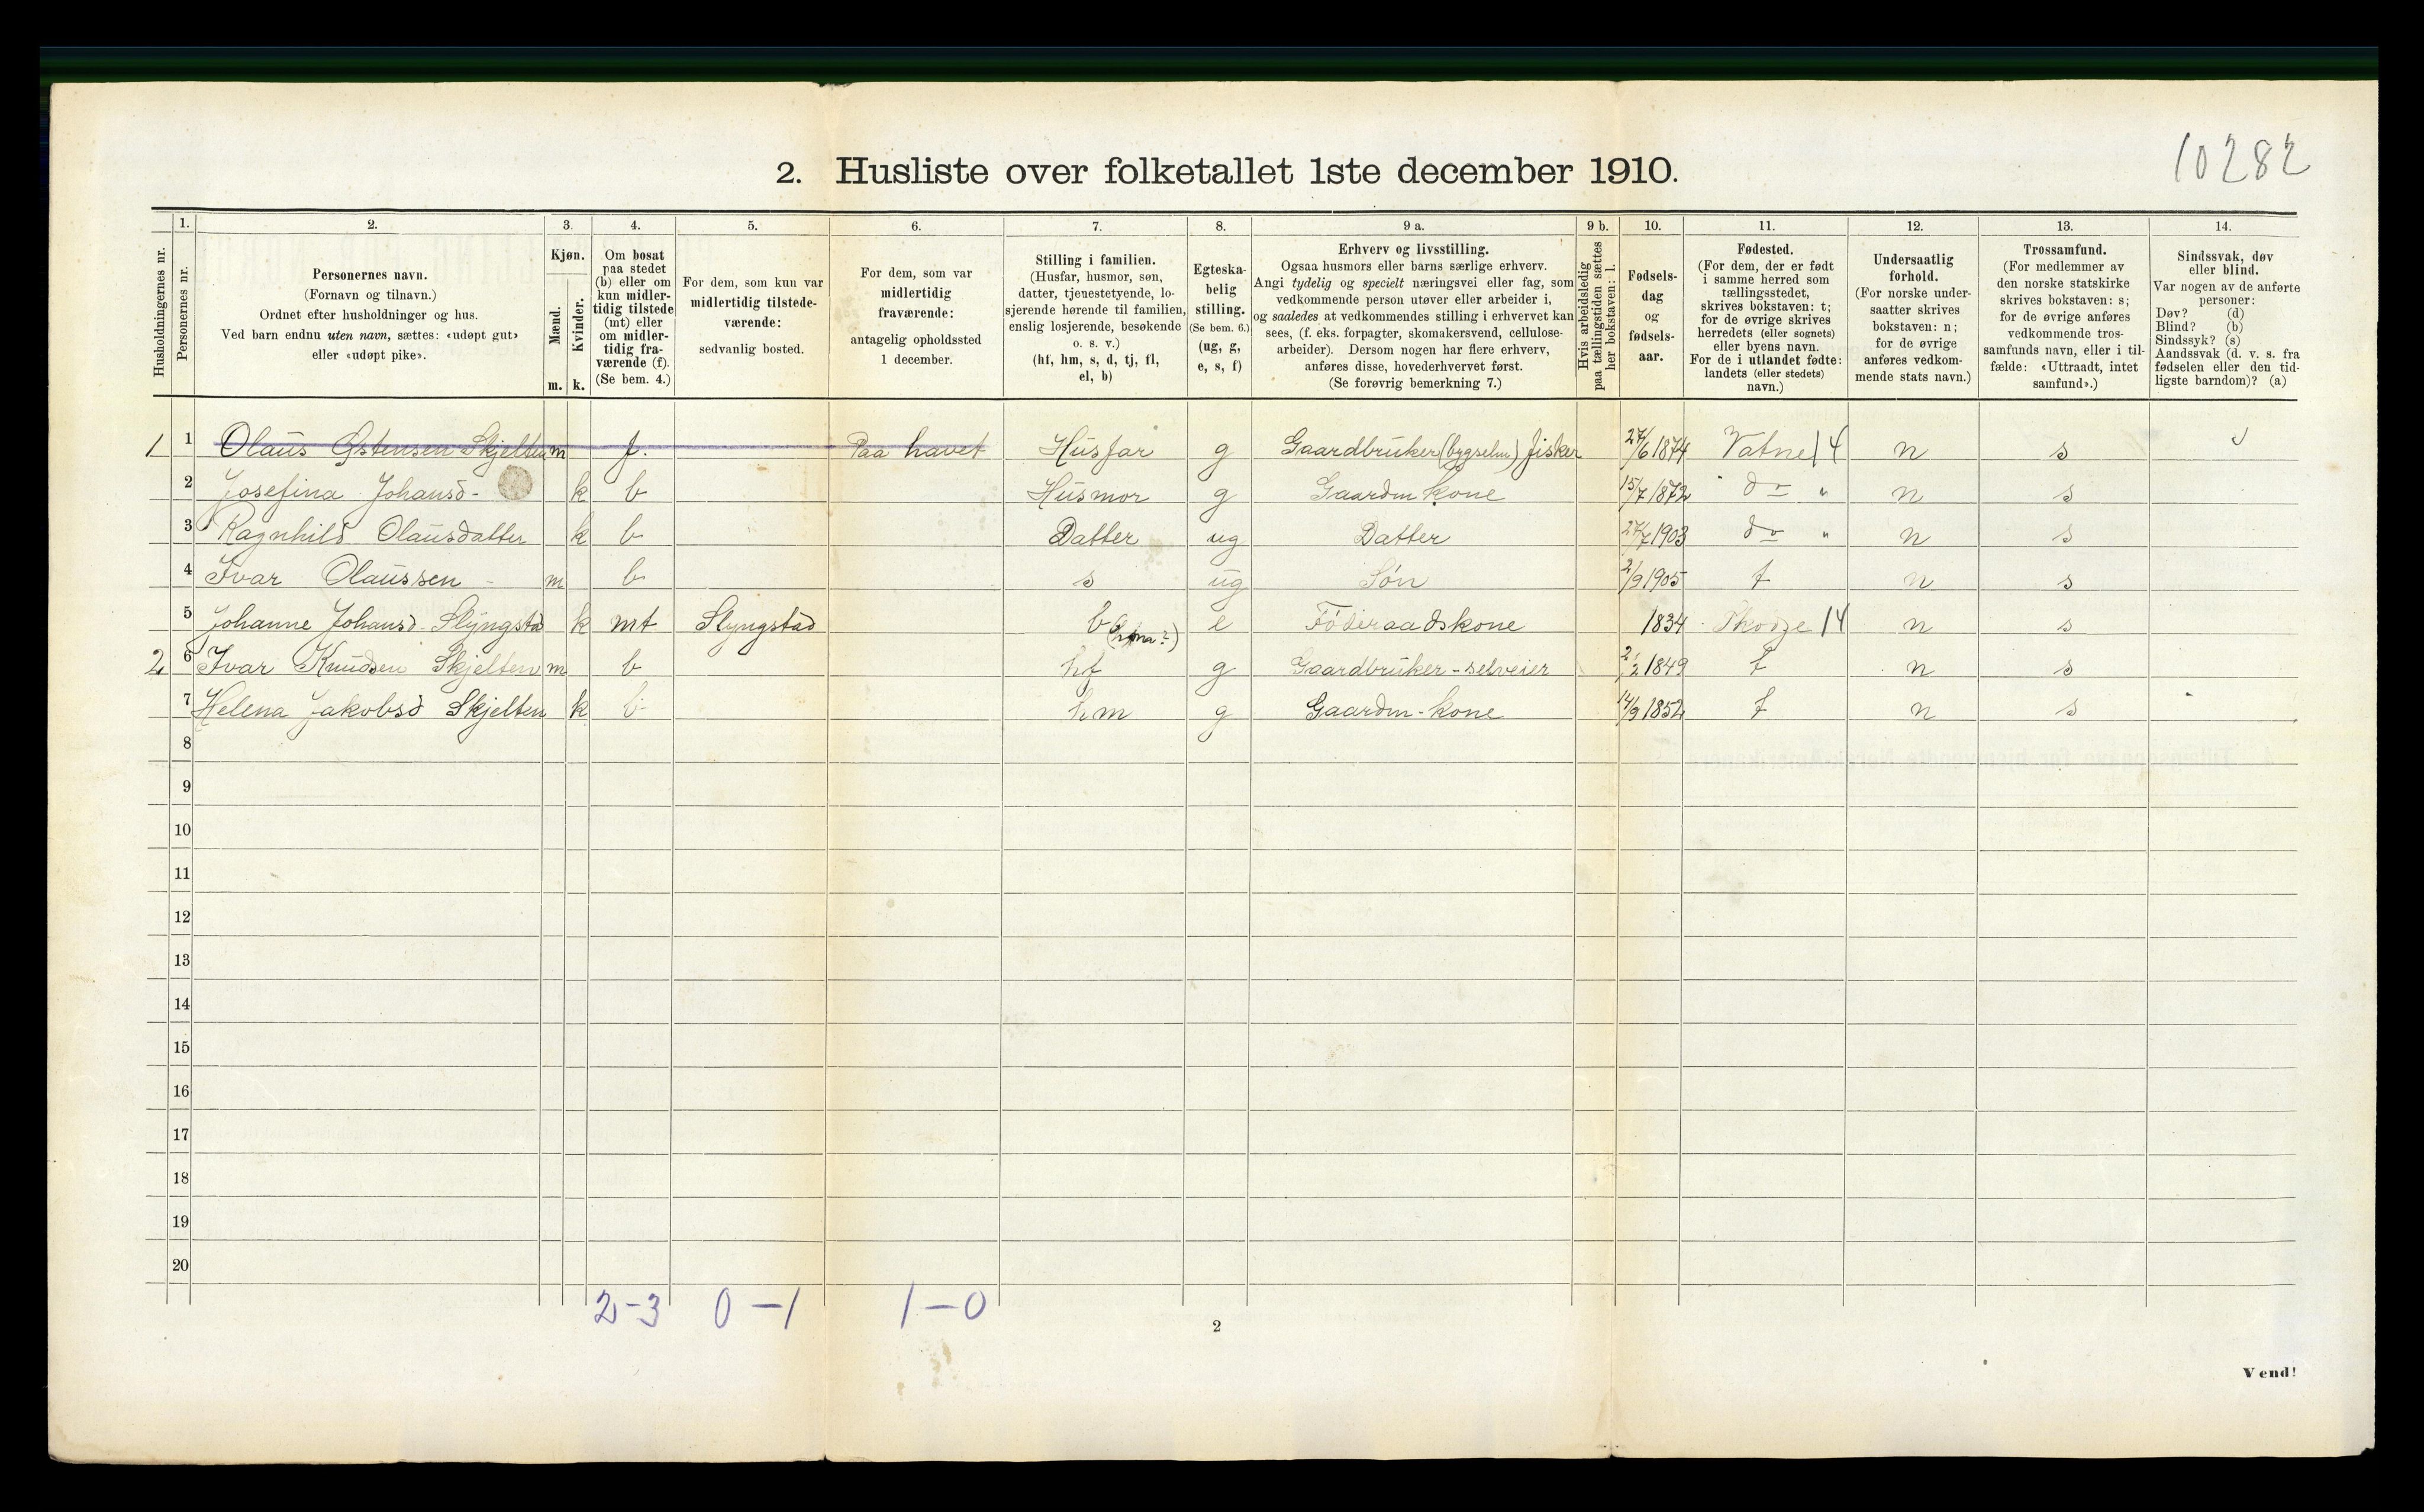 10282
2. Husliste over folketallet 1ste december 1910.
Husholdningernes nr.
1.
Personernes nr.
2.
Personernes navn.
(Fornavn og tilnavn.)
Ordnet efter husholdninger og hus.
Ved barn endnu uten navn, sættes: «udøpt gut»
eller «udøpt pike».
3.
Kjøn.
Mænd.
Kvinder.
m. k.
4.
Om bosat
paa stedet
(b) eller om
kun midler-
tidig tilstede
(mt) eller
om midler-
tidig fra-
værende (f).
(Se bem. 4.)
5.
For dem, som kun var
midlertidig tilstede-
værende:
sedvanlig bosted.
6.
For dem, som var
midlertidig
fraværende:
antagelig opholdssted
1 december.
7.
Stilling i familien.
(Husfar, husmor, søn,
datter, tjenestetyende, lo-
sjerende hørende til familien,
enslig losjerende, besøkende
o. s. v.)
(hf, hm, s, d, tj, fl,
el, b)
8.
Egteska-
belig
stilling.
(Se bem. 6.)
(ug, g,
e, s, f)
9 a.
Erhverv og livsstilling.
Ogsaa husmors eller barns særlige erhverv.
Angi tydelig og specielt næringsvei eller fag, som
vedkommende person utøver eller arbeider i,
og saaledes at vedkommendes stilling i erhvervet kan
sees, (f. eks. forpagter, skomakersvend, cellulose-
arbeider). Dersom nogen har flere erhverv,
anføres disse, hovederhvervet først.
(Se forøvrig bemerkning 7.)
9 b.
Hvis arbeidsledig
paa tællingstiden sættes
her bokstaven: l.
10.
Fødsels-
dag
og
fødsels-
aar.
11.
Fødested.
(For dem, der er født
i samme herred som
tællingsstedet,
skrives bokstaven: t;
for de øvrige skrives
herredets (eller sognets)
eller byens navn.
For de i utlandet fødte:
landets (eller stedets)
navn.)
12.
Undersaatlig
forhold.
(For norske under-
saatter skrives
bokstaven: n;
for de øvrige
anføres vedkom-
mende stats navn.)
13.
Trossamfund.
(For medlemmer av
den norske statskirke
skrives bokstaven: s;
for de øvrige anføres
vedkommende tros-
samfunds navn, eller i til-
fælde: «Uttraadt, intet
samfund».)
14.
Sindssvak, døv
eller blind.
Var nogen av de anførte
personer:
Døv? (d)
Blind? (b)
Sindssyk? (s)
Aandssvak (d. v. s. fra
fødselen eller den tid-
ligste barndom)? (a)
1 1 Olaus Østensen Skjelten m f. Paa havet Husfar g Gaardbruker (bygselm) fisker 27/6 1874 Vatne 14 n s
2 Josefina Johansd- k b Husmor g Gaardm kone 15/7 1872 do " n s
3 Ragnhild Olausdatter k b Datter ug Datter 27/7 1903 do " n s
4 Ivar Olaussen - m b s ug Søn 2/9 1905 t n s
5 Johanne Johansd. Slyngstad k mt Slyngstad b e Føderaadskone 1834 Skodje 14 n s
2 6 Ivar Knudsen Skjelten m b hf g Gaardbruker - selveier 2/2 1849 t n s
7 Helena Jakobsd Skjelten k b hm g Gaardm-kone 14/9 1852 t n s
8
9
10
11
12
13
14
15
16
17
18
19
20
2-3 0-1 1-0
2
Vend!